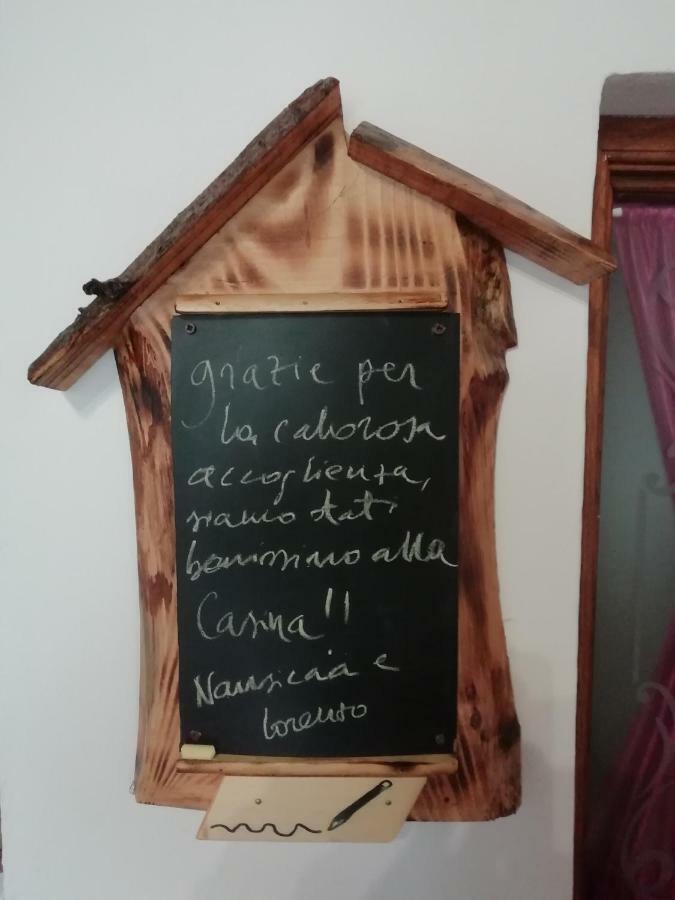 grazie per
la calorosa
accoglienza,
siamo stati
benissimo alla
Casina!!
Nausicaa e
Lorenzo